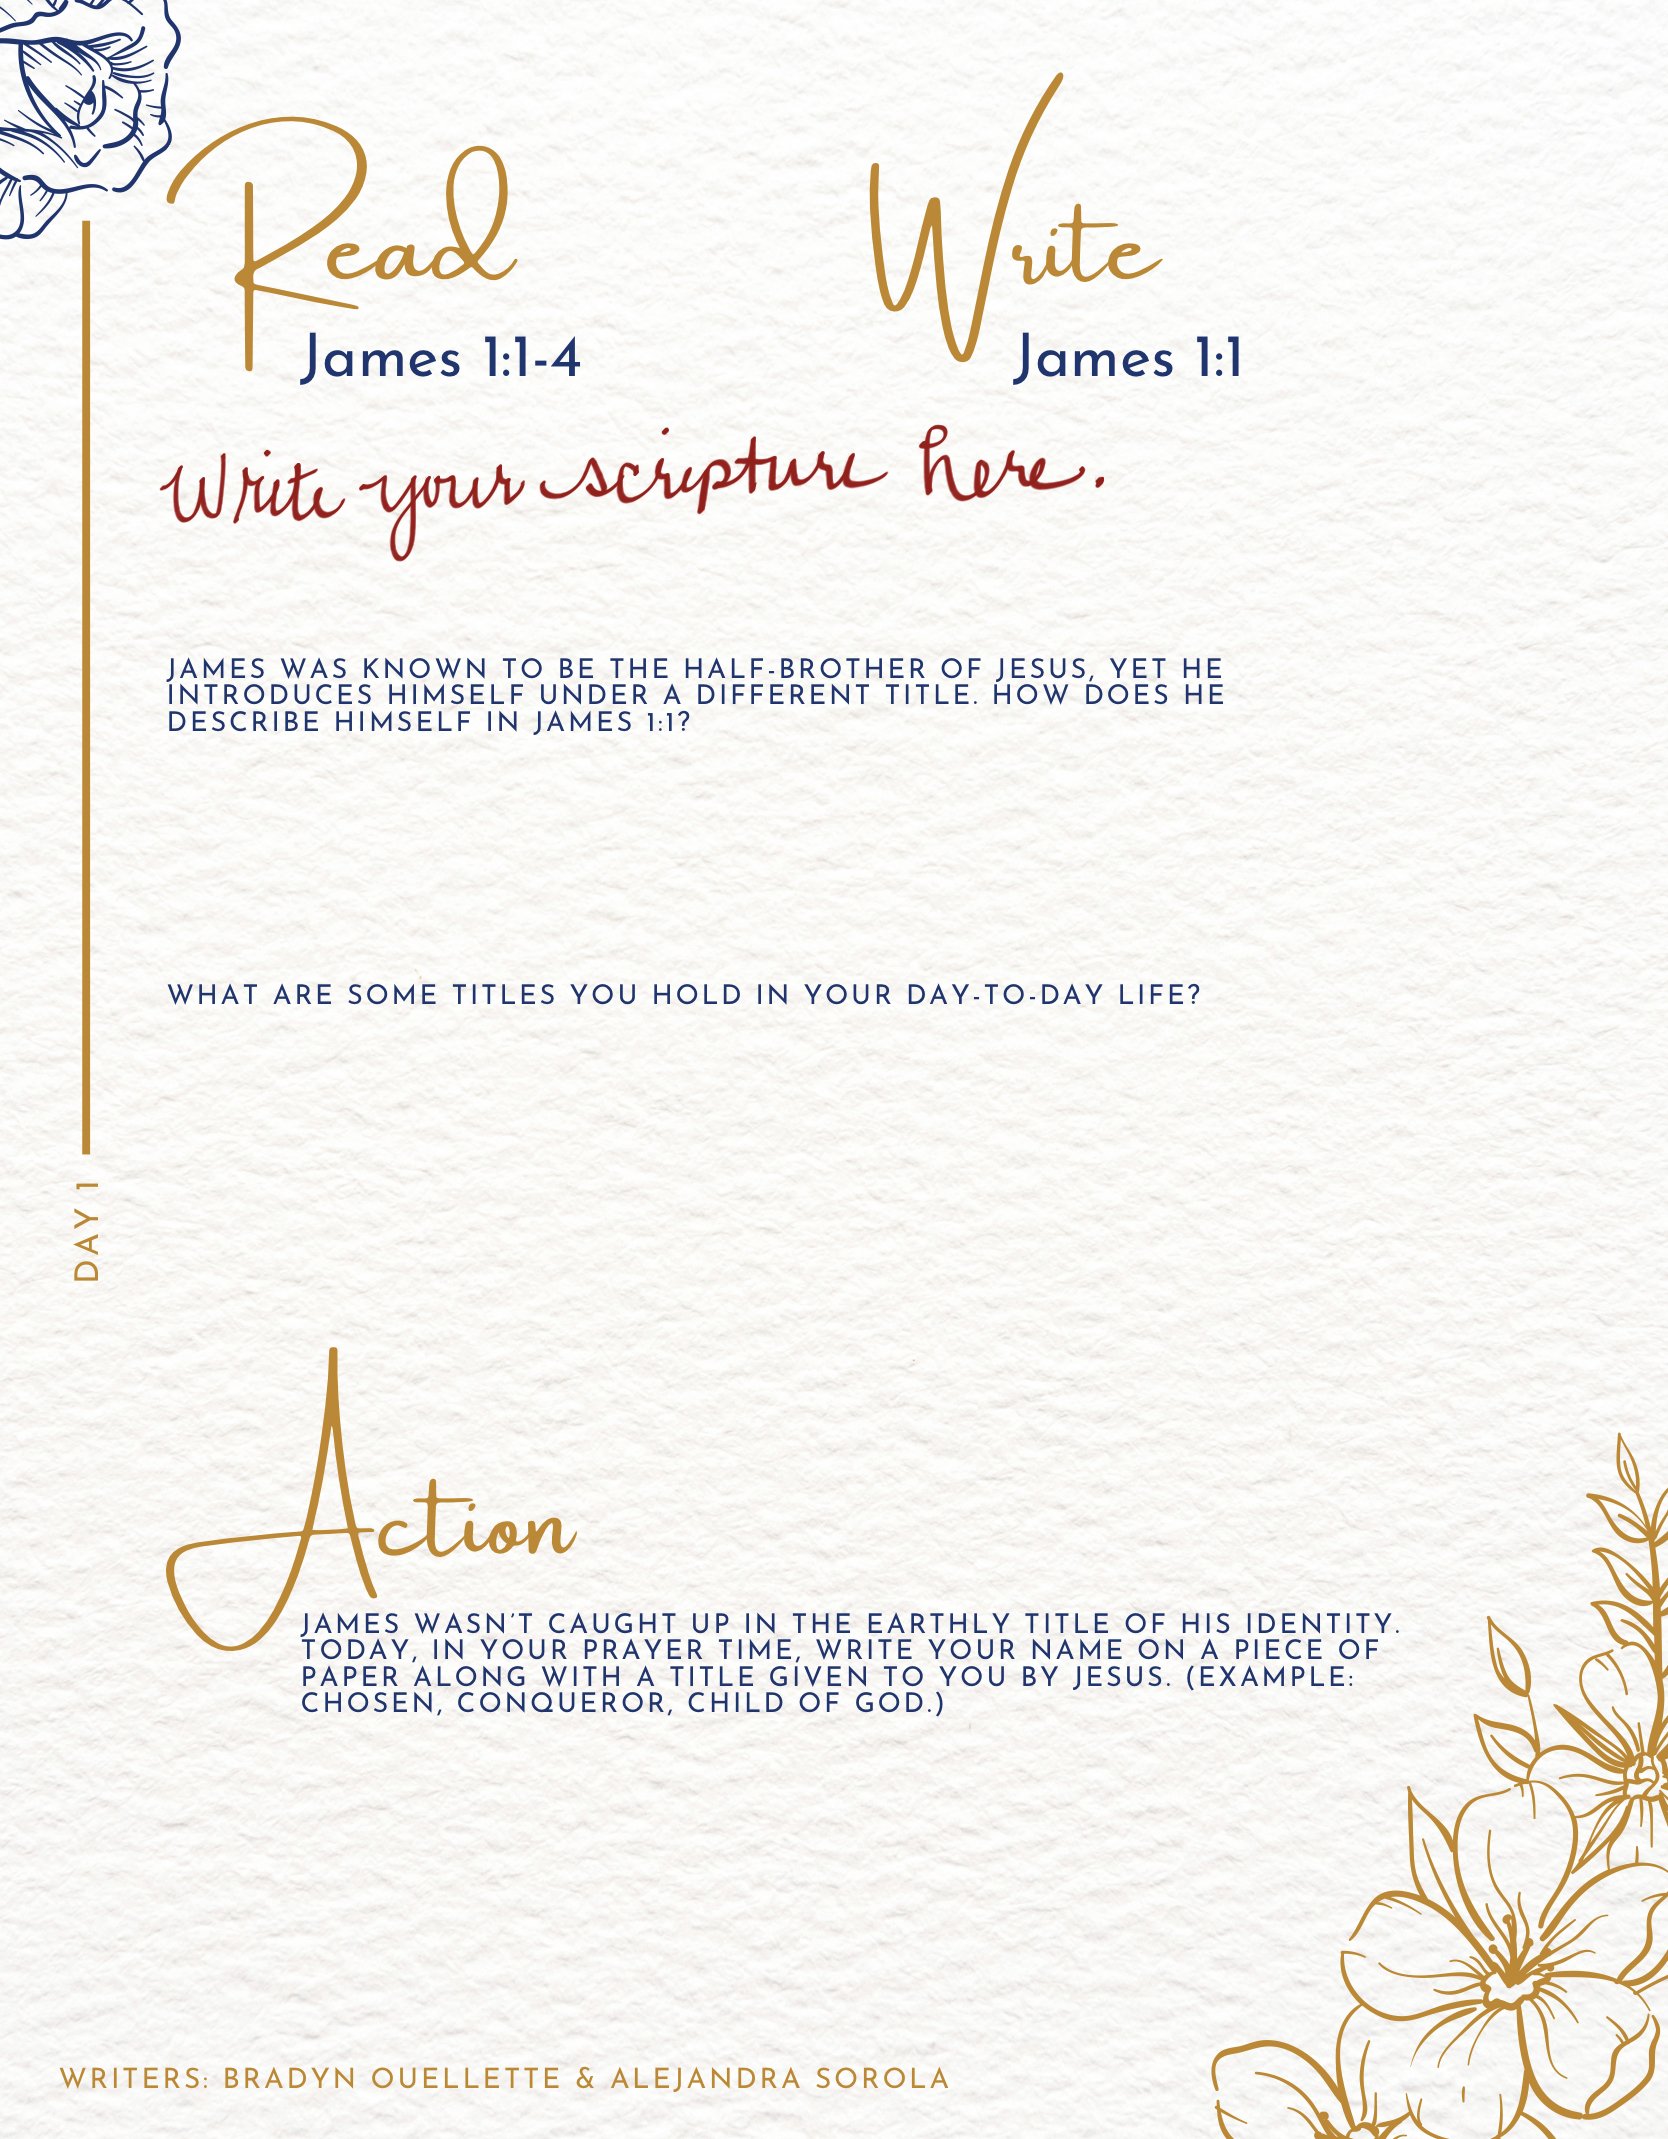 Read
James 1:1-4
Write
James 1:1
Write your scripture here.
JAMES WAS KNOWN TO BE THE HALF-BROTHER OF JESUS, YET HE
INTRODUCES HIMSELF UNDER A DIFFERENT TITLE. HOW DOES HE
DESCRIBE HIMSELF IN JAMES 1:1?
WHAT ARE SOME TITLES YOU HOLD IN YOUR DAY-TO-DAY LIFE?
DAY 1
Action
JAMES WASN'T CAUGHT UP IN THE EARTHLY TITLE OF HIS IDENTITY.
TODAY, IN YOUR PRAYER TIME, WRITE YOUR NAME ON A PIECE OF
PAPER ALONG WITH A TITLE GIVEN TO YOU BY JESUS. (EXAMPLE:
CHOSEN, CONQUEROR, CHILD OF GOD.)
WRITERS: BRADYN OUELLETTE & ALEJANDRA SOROLA